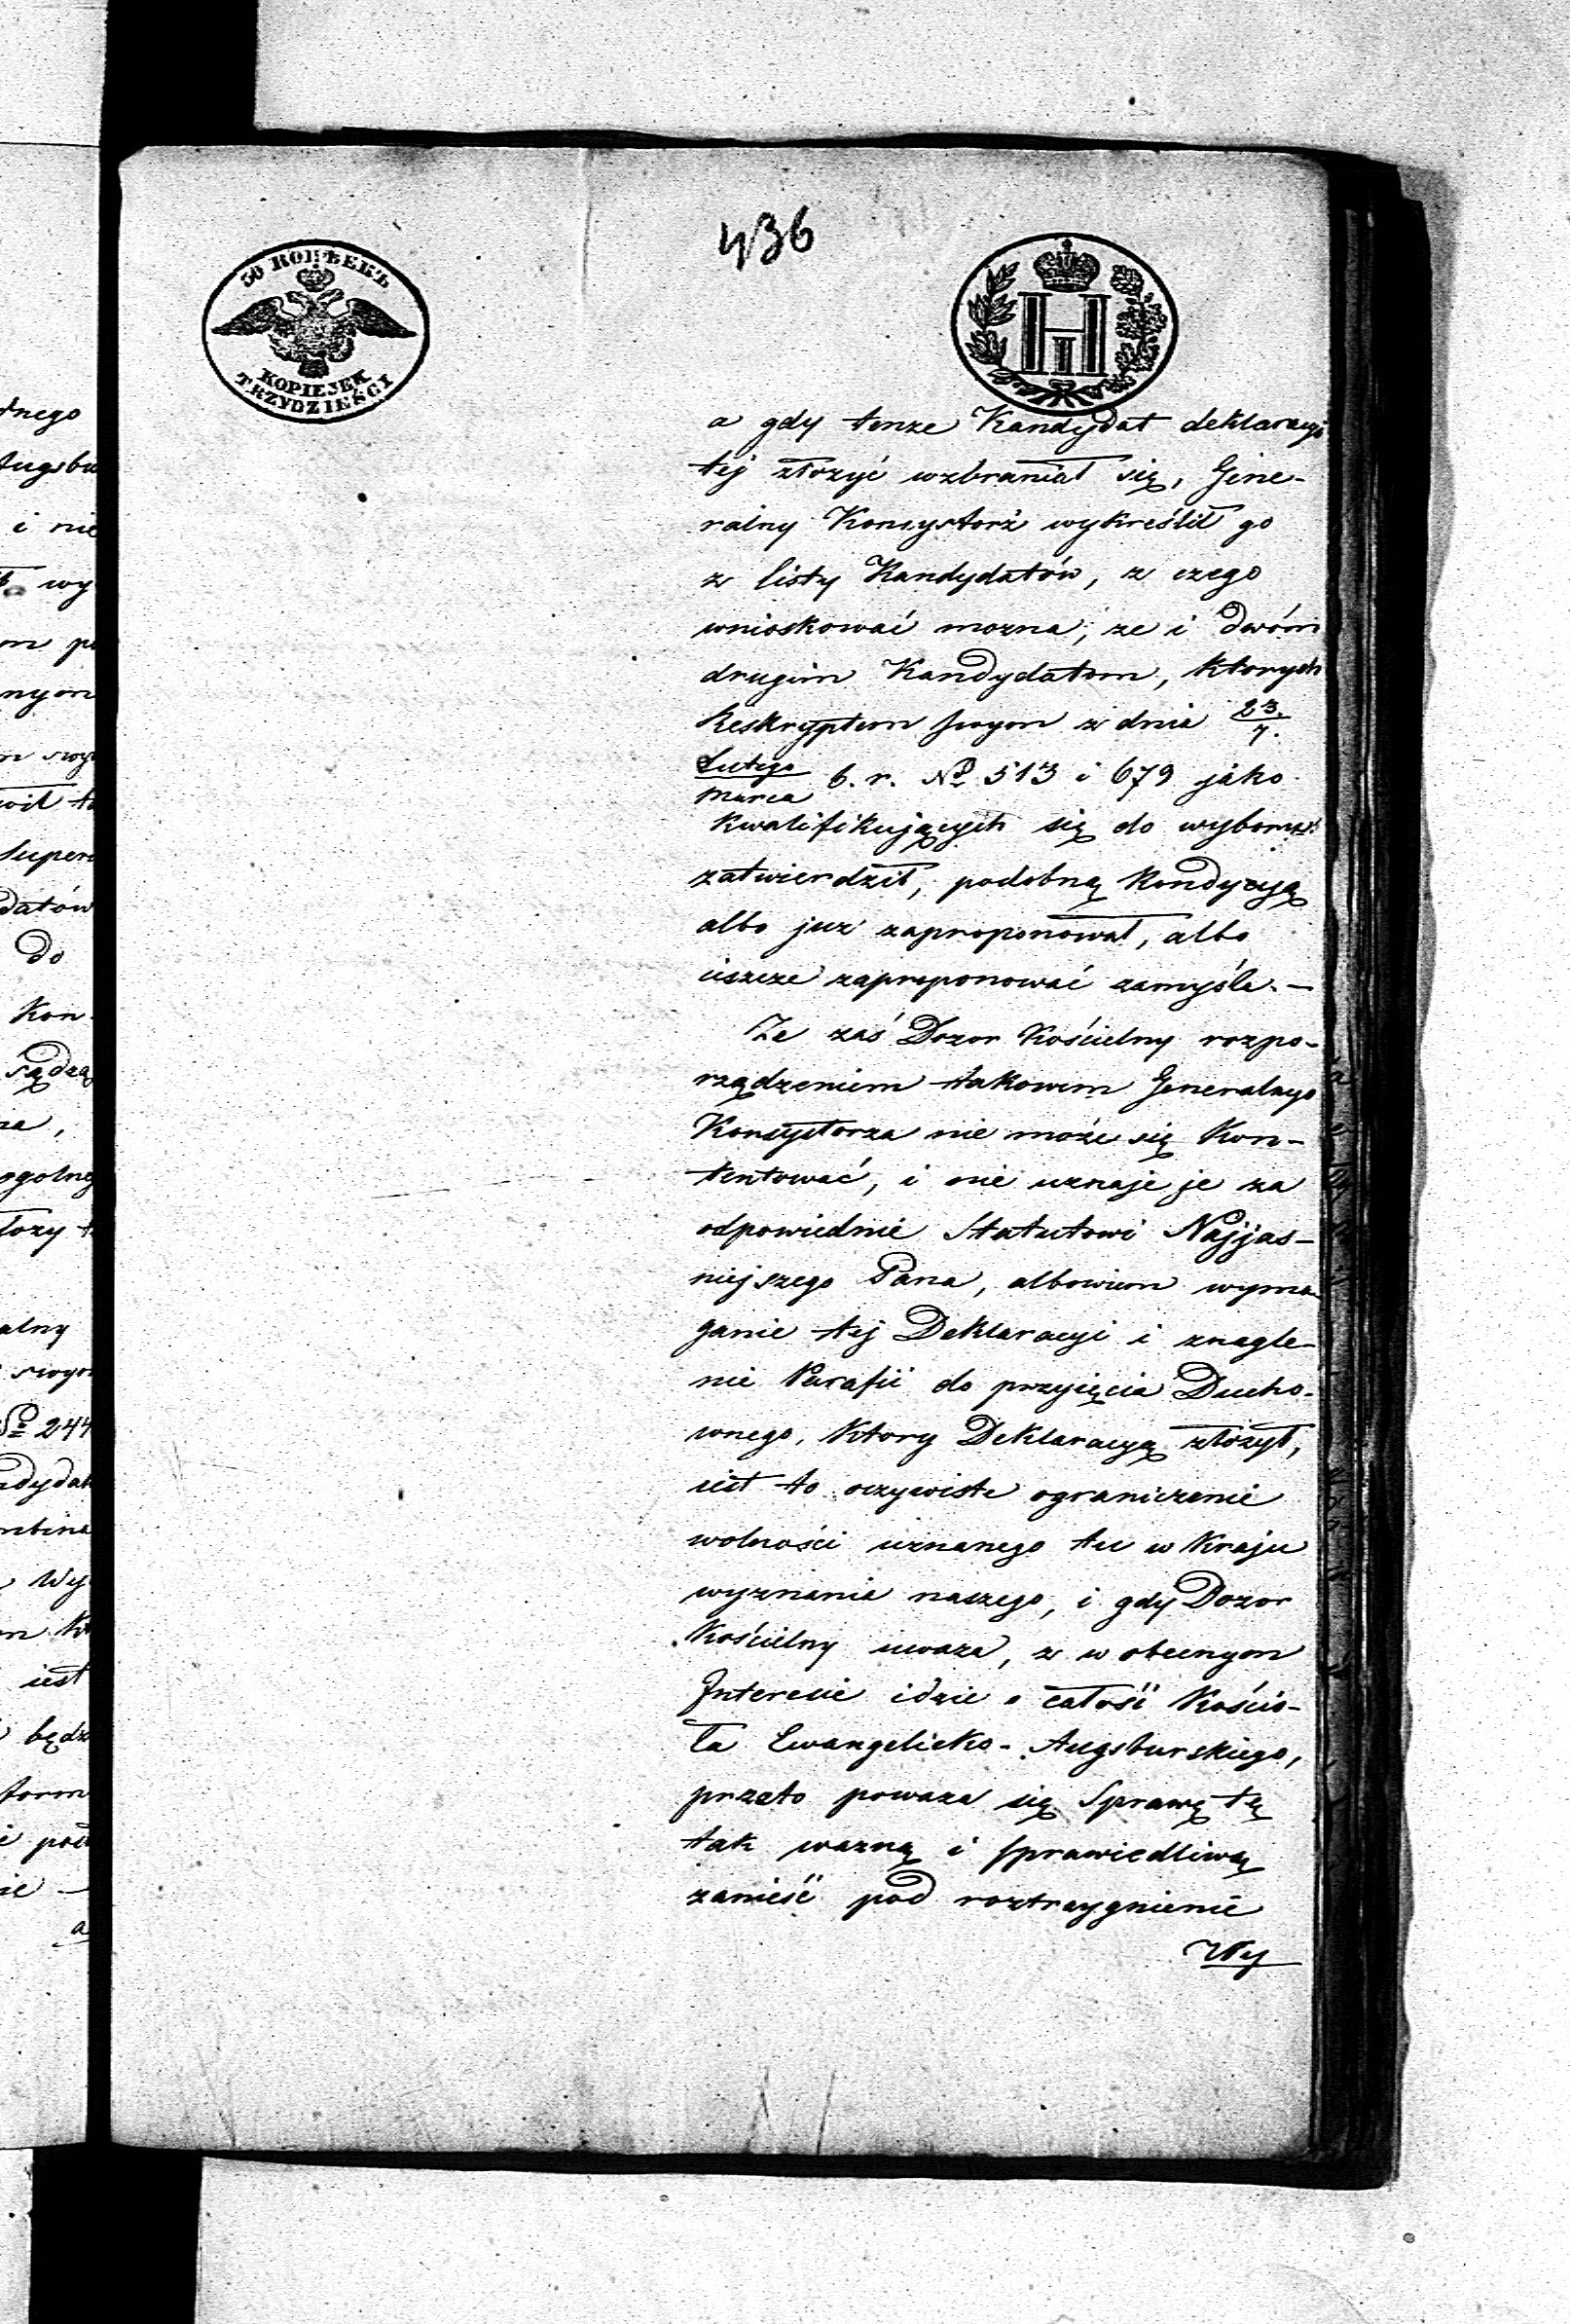 436
30 КОПѢЕКЪ
KOPIEJEK
TRZYDZIEŚCI
H I
a gdy tenze Kandydat deklaracyi
tej złozyć wzbraniał się, Gene-
ralny Konsystorz wykreślił go
z listy Kandydatów, z czego
wnioskować mozna, ze i dwóm
drugim Kandydatom, ktorych
Reskryptem swym z dnia 23./7.
Lutego/Marca b. r. No 513 i 679 jako
kwalifikujących się do wyboru
zatwierdził, podobną Kondycyą
albo juz zaproponował, albo
ieszcze zaproponować zamyśla. —
Ze zaś Dozor Kościelny rozpo-
rządzeniem takowem Generalnego
Konsystorza nie może się kon-
tentować, i nie uznaje je za
odpowiednie Statutowi Najjas-
niejszego Pana, albowiem wyma-
ganie tej Deklaracyi i znagle-
nie Parafii do przyięcia Ducho-
wnego, ktory Deklaracyą złozył,
iest to oczywiste ograniczenie
wolności uznanego tu w Kraju
wyznania naszego, i gdy Dozor
Kościelny uwaza, z w obecnym
Interesie idzie o całość Kościo-
ła Ewangelicko-Augsburskiego,
przeto powaza się Sprawę tę
tak wazną i sprawiedliwą
zanieść pod roztrzygnienie
Wy
dnego
Augsbu
i nie
wy
nym
do
Kon-
sądzą
alny
No 244
Wy
iest
będz
a